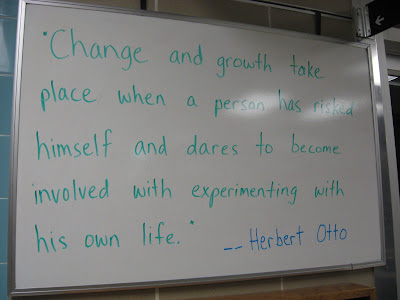 "Change and growth take
place when a person has risked
himself and dares to become
involved with experimenting with
his own life."
-- Herbert Otto